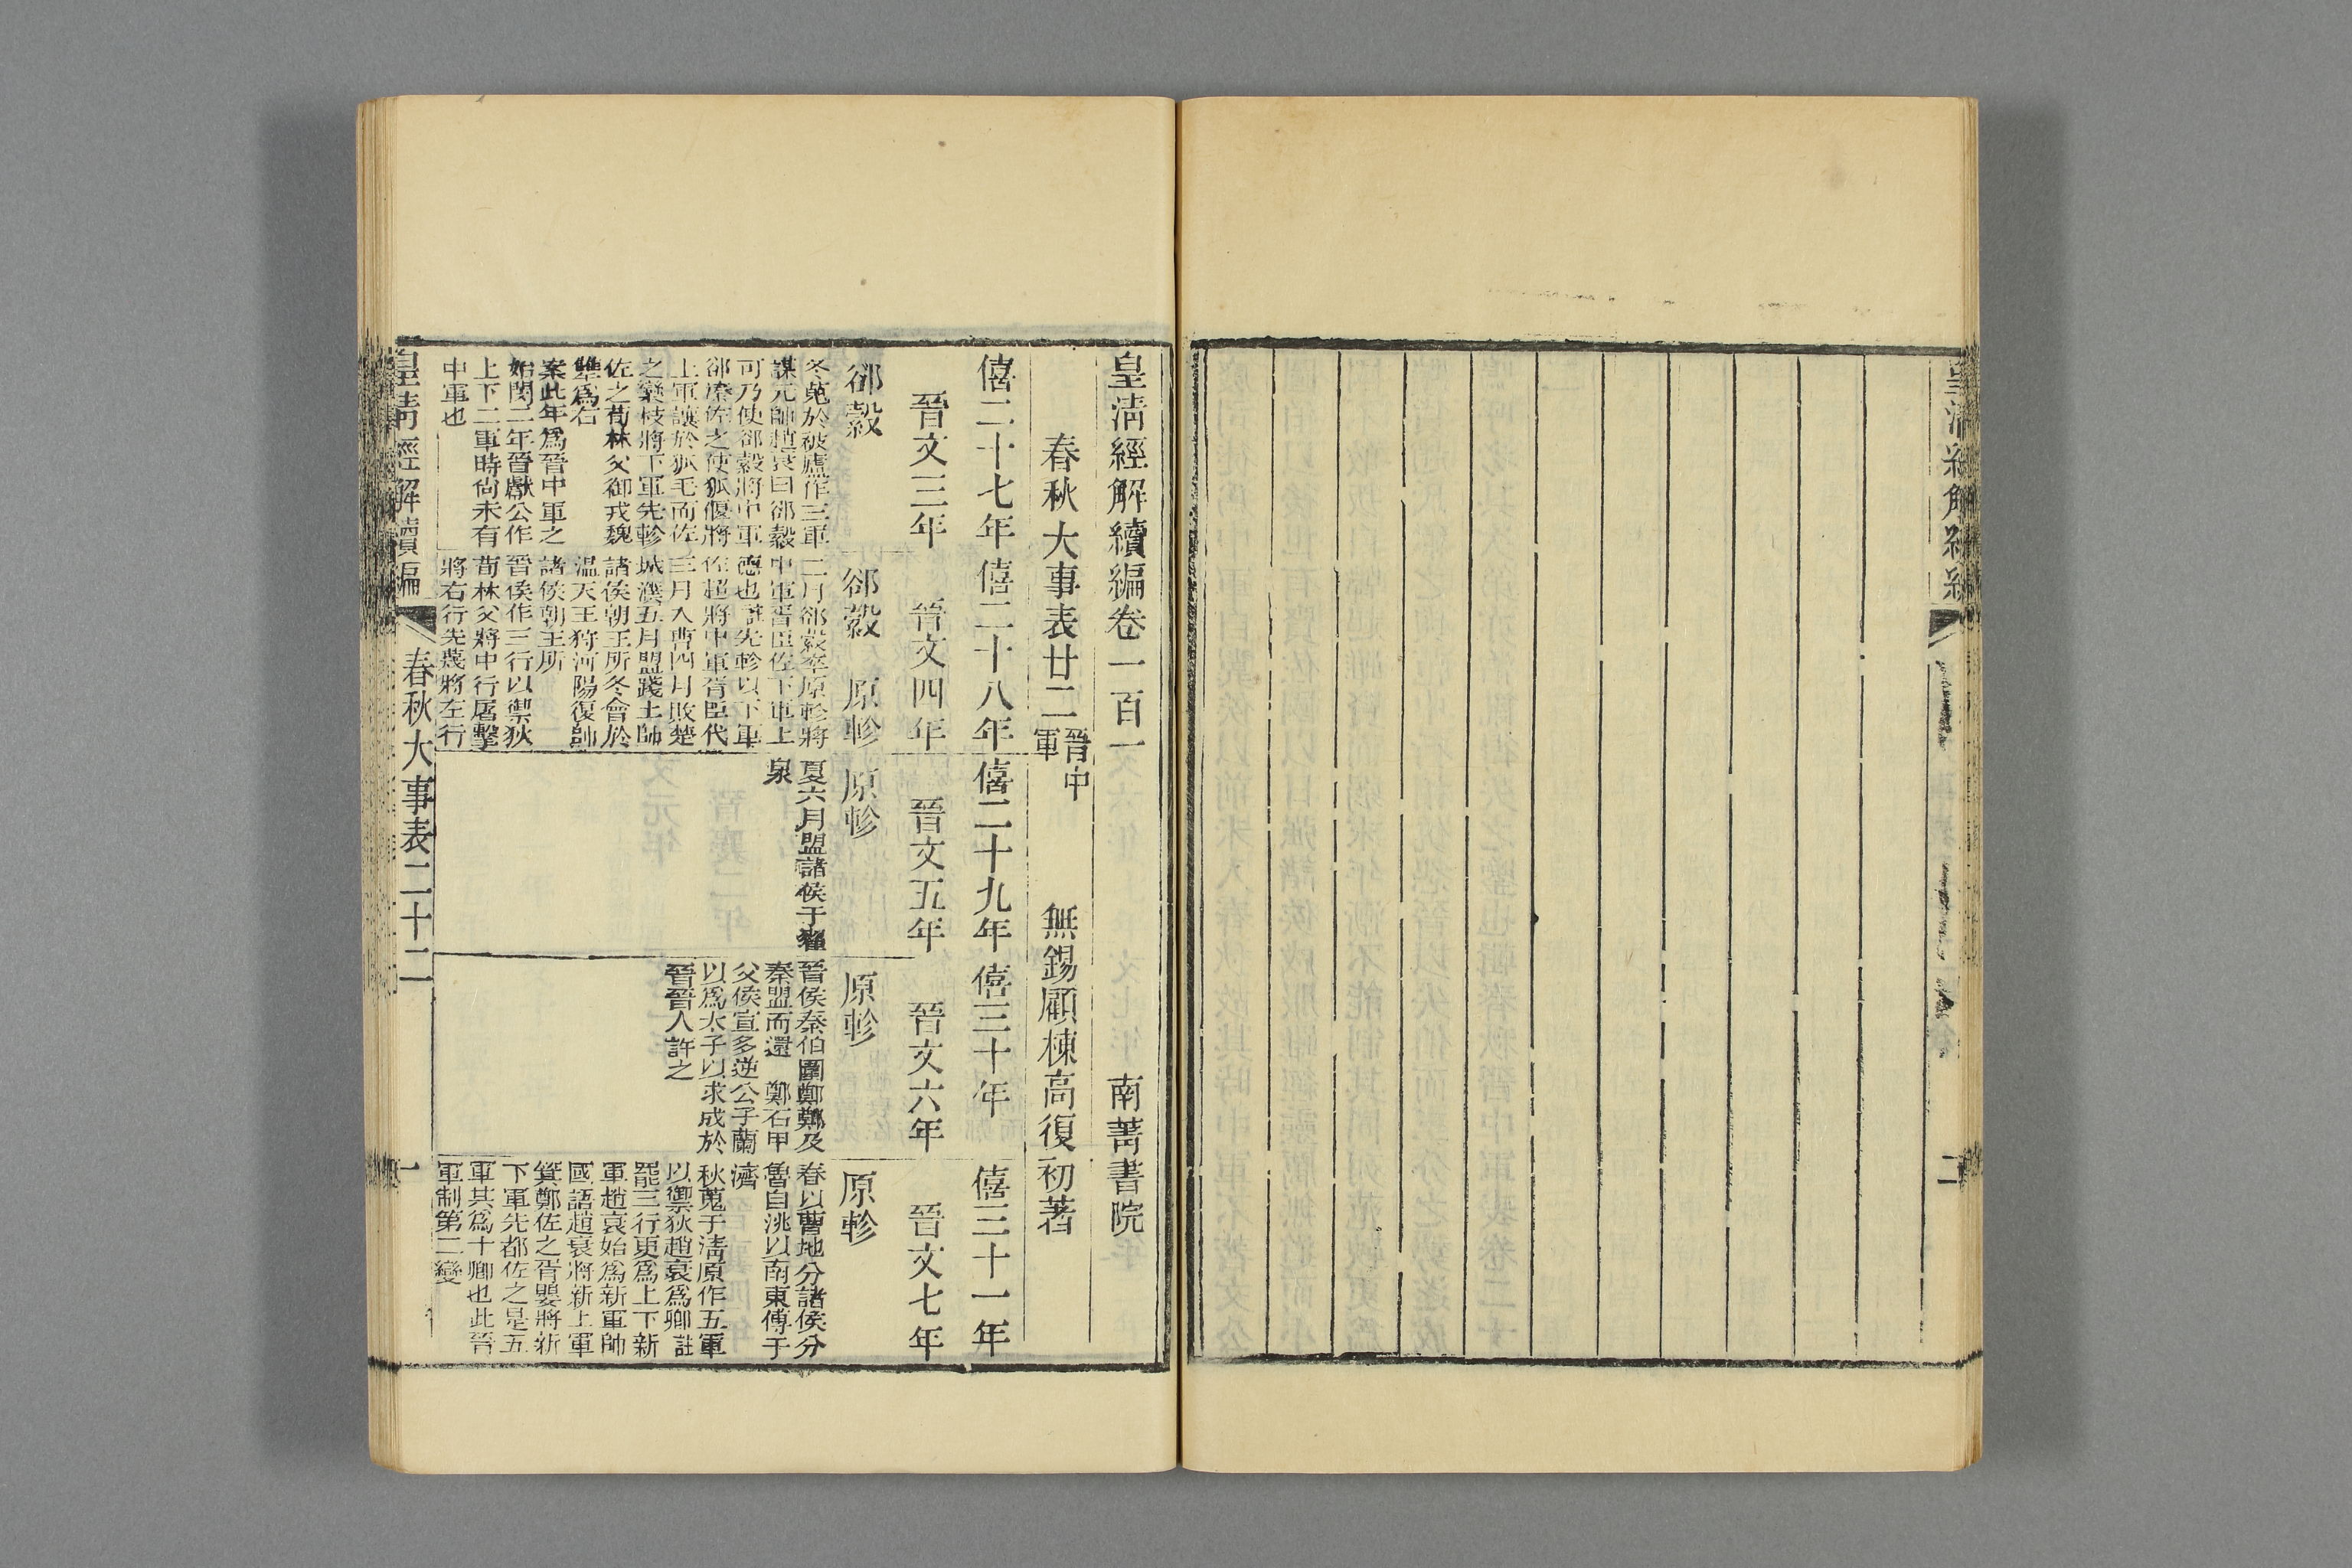 二
皇清經解續編卷一百一
南菁書院
春秋大事表廿二
晉中
軍
無錫顧棟高復初著
僖二十七年
僖二十八年
僖二十九年
僖三十年
僖三十一年
晉文三年
晉文四年
晉文五年
晉文六年
晉文七年
郤縠
冬蒐於被廬作三軍
謀元帥趙衰曰郤縠
可乃使郤縠將中軍
郤溱佐之使狐偃將
上軍讓於狐毛而佐
之欒枝將下軍先軫
佐之荀林父御戎魏
犨爲右
案此年爲晉中軍之
始閔二年晉獻公作
上下二軍時尙未有
中軍也
郤縠 原軫
二月郤縠卒原軫將
中軍胥臣佐下軍上
德也註先軫以下軍
佐超將中軍胥臣代
三月入曹四月敗楚
城濮五月盟踐土帥
諸侯朝王所冬會於
溫天王狩河陽復帥
諸侯朝王所
晉侯作三行以禦狄
荀林父將中行屠擊
將右行先蔑將左行
原軫
夏六月盟諸侯于翟
泉
原軫
晉侯秦伯圍鄭鄭及
秦盟而還 鄭石甲
父侯宣多逆公子蘭
以爲太子以求成於
晉晉人許之
原軫
春以曹地分諸侯分
魯自洮以南東傅于
濟
秋蒐于淸原作五軍
以禦狄趙衰爲卿 註
罷三行更爲上下新
軍趙衰始爲新軍帥
國語趙衰將新上軍
箕鄭佐之胥嬰將新
下軍先都佐之是五
軍其爲十卿也此晉
軍制第二變
皇清經解續編
春秋大事表二十二
一